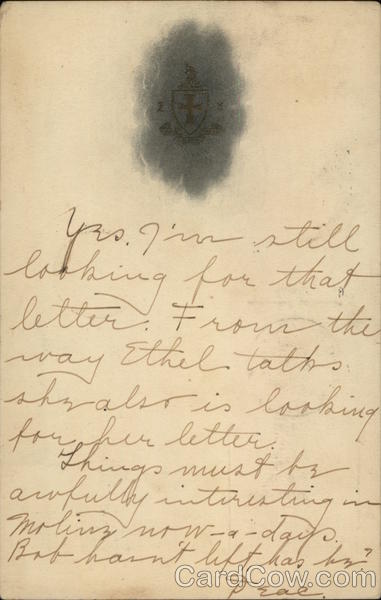 Yes. I'm still
looking for that
letter. From the
way Ethel talks
she also is looking
for her letter.
Things must be
awfully interesting in
Moline now-a-days.
Bob hasn't left has he?
CardCow.com